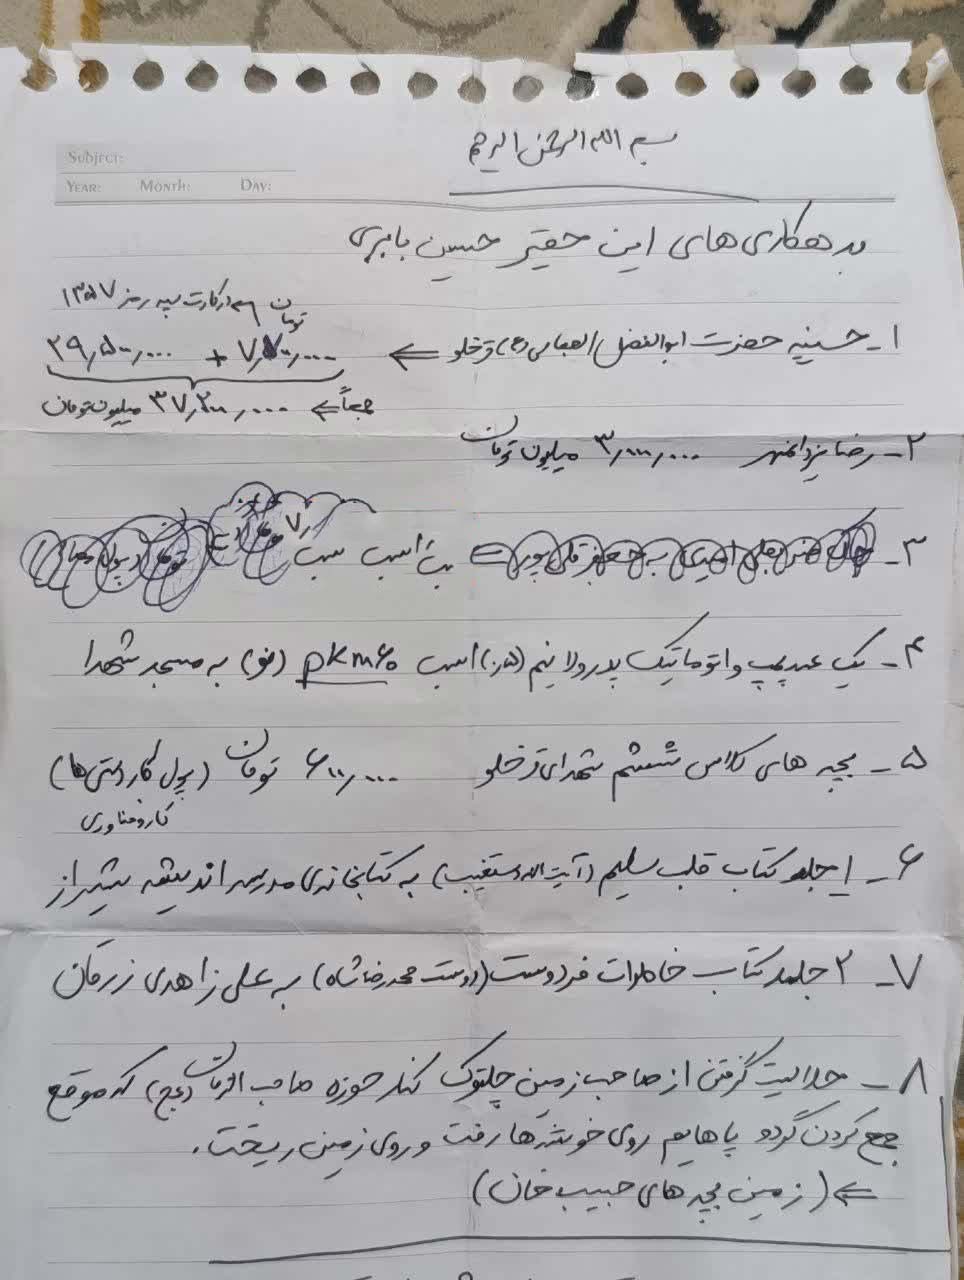 Subject:
YEAR: MONTH: DAY:
بسم الله الرحمن الرحیم
بدهکاری های این حقیر حسین بابری
۱ـ حسینیه حضرت ابوالفضل العباس (ع) قرخلو ⇐ ۷,۷۰۰,۰۰۰ + ۲۹,۵۰۰,۰۰۰
تومان در کارت سپه رمز ۱۳۵۷
جمعاً ⇐ ۳۷,۲۰۰,۰۰۰ میلیون تومان
۲ـ رضا یزدانمهر ۳,۰۰۰,۰۰۰ میلیون تومان
۳ـ
۴ـ یک عدد پمپ و اتوماتیک پدرولا نیم (۰٫۵) اسب pkm60 (نو) به مسجد شهدا
۵ـ بچه های کلاس ششم شهدای قرخلو ۶۰۰,۰۰۰ تومان (پول کاردستی ها)
کاروفناوری
۶ـ ۱ جلد کتاب قلب سلیم (آیت الله دستغیب) به کتابخانه‌ی مدرسه اندیشه شیراز
۷ـ ۲ جلد کتاب خاطرات فردوست (دوست محمدرضا شاه) به علی زاهدی زرقان
۸ـ حلالیت گرفتن از صاحب زمین چلتوک کنار حوزه صاحب الزمان (عج) که موقع
جمع کردن گردو پاهایم روی خوشه ها رفت و روی زمین ریخت.
⇐ (زمین بچه های حبیب خان)